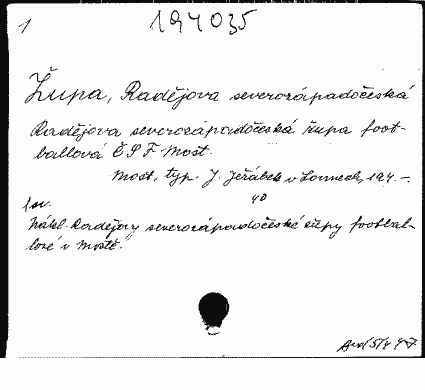 1
194035
Župa, Radějova severozápadočeská
Radějova severozápadočeská župa foot-
ballová ČSF Most.
Most, typ. J. Jeřábek v Lounech, 194.-.
40
1 sv.
Nákl. Radějovy severozápadočeské župy footbal-
lové v Mostě.